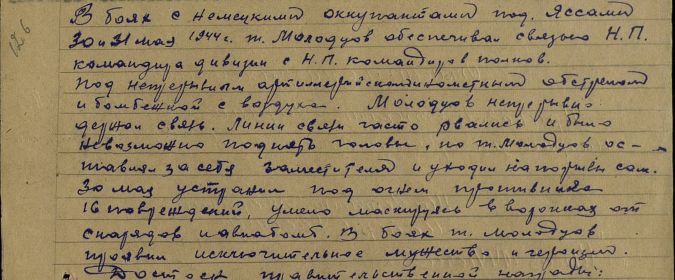 126
В боях с немецкими оккупантами под Яссами
30 и 31 мая 1944 г. т. Молодцов обеспечивал связью Н.П.
командира дивизии с Н.П. командиров полков.
Под непрерывным артиллерийско минометным обстрелом
и бомбежкой с воздуха. Молодцов непрерывно
держал связь. Линии связи часто рвались и было
невозможно поднять головы, но т. Молодцов ос-
тавлял за себя заместителя и уходил на порывы сам.
30 мая устранил под огнем противника
16 повреждений, умело маскируясь в воронках от
снарядов и авиабомб. В боях т. Молодцов
проявил исключительное мужество и героизм.
Достоин правительственной награды: